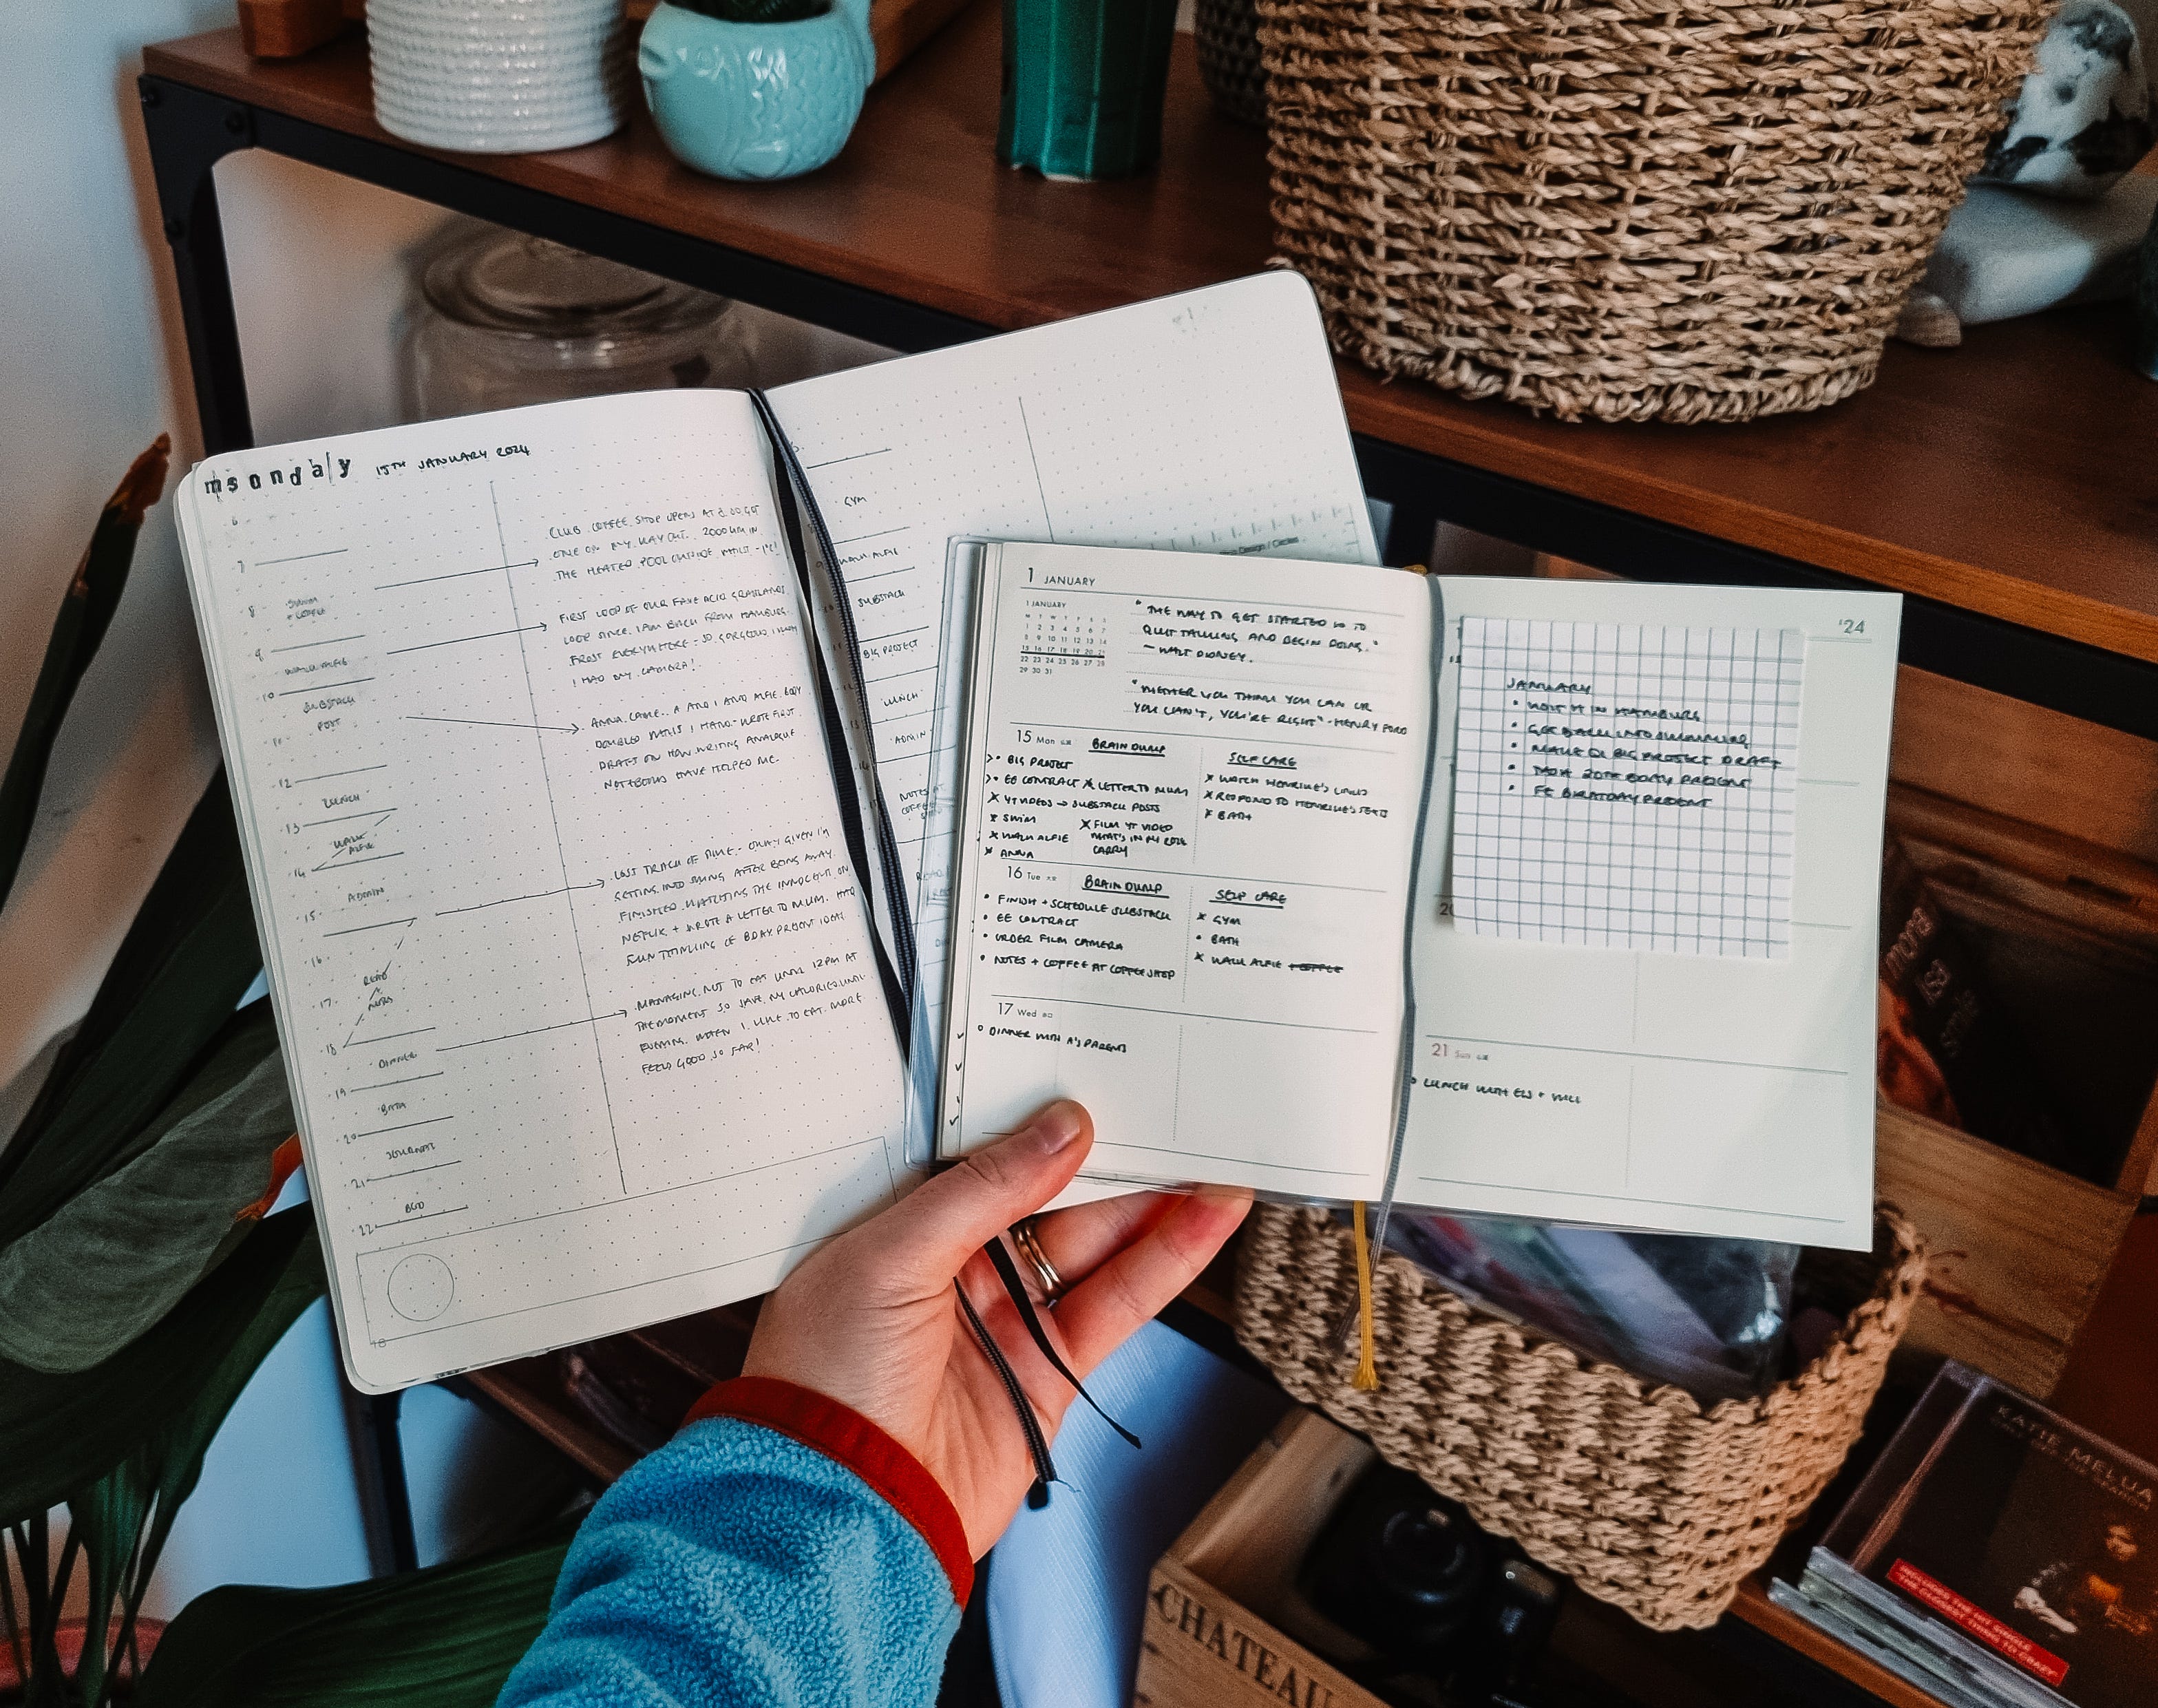 msonday 15TH JANUARY 2024
6
7
8
SWIM
+ COFFEE
9
WALK ALFIE
10
SUBSTACK
POST
11
12
LUNCH
13
WALK
ALFIE
14
ADMIN
15
16
READ
17
18
DINNER
19
BATH
20
JOURNAL
21
BED
22
18
CLUB COFFEE SHOP OPENS AT 8.00 GOT
ONE ON MY WAY OUT. 2000M IN
THE HEATED POOL OUTSIDE WHILST
FIRST LOOP OF OUR FAVE ACID GRASSLANDS
LOOP SINCE I AM BACK FROM HAMBURG.
FROST EVERYWHERE - SO GORGEOUS I WISH
I HAD MY CAMERA!
ANNA CAME. A AND I AND ALFIE BODY
DOUBLED WHILST I HAND-WROTE FIRST
DRAFT ON HOW WRITING ANALOGUE
NOTEBOOKS HAVE HELPED ME.
LOST TRACK OF TIME - OKAY GIVEN I'M
GETTING INTO SWING AFTER BEING AWAY.
FINISHED WATCHING THE INNOCENT ON
NETFLIX + WROTE A LETTER TO MUM. HAD
FUN THINKING OF BDAY PRESENT IDEAS.
MANAGING NOT TO EAT UNTIL 12PM AT
THE MOMENT SO SAVE MY CALORIES UNTIL
EVENING WHEN I LIKE TO EAT MORE.
FEELS GOOD SO FAR!
GYM
WALK ALFIE
SUBSTACK
BIG PROJECT
LUNCH
ADMIN
NOTES AT
COFFEE
1 JANUARY
1 JANUARY
M T W T F S S
1 2 3 4 5 6 7
8 9 10 11 12 13 14
15 16 17 18 19 20 21
22 23 24 25 26 27 28
29 30 31
"THE WAY TO GET STARTED IS TO
QUIT TALKING AND BEGIN DOING."
- WALT DISNEY.
"WHETHER YOU THINK YOU CAN OR
YOU CAN'T, YOU'RE RIGHT" - HENRY FORD
15 Mon
BRAIN DUMP
BIG PROJECT
EE CONTRACT
LETTER TO MUM
YT VIDEOS → SUBSTACK POSTS
SWIM
WALK ALFIE
ANNA
FILM YT VIDEO
WHAT'S IN MY 2024
CARRY
SELF CARE
WATCH HENRIKE'S LINKS
RESPOND TO HENRIKE'S TEXTS
BATH
16 Tue
BRAIN DUMP
FINISH + SCHEDULE SUBSTACK
EE CONTRACT
ORDER FILM CAMERA
NOTES + COFFEE AT COFFEE SHOP
SELF CARE
GYM
BATH
WALK ALFIE + COFFEE
17 Wed
DINNER WITH A'S PARENTS
'24
JANUARY
VISIT H IN HAMBURG
GET BACK INTO SWIMMING
MAKE BIG PROJECT DRAFT
30TH BDAY PRESENT
BIRTHDAY PRESENT
20
21 Sun
LUNCH WITH ELS + WILL
CHATEAU
KATIE MELUA